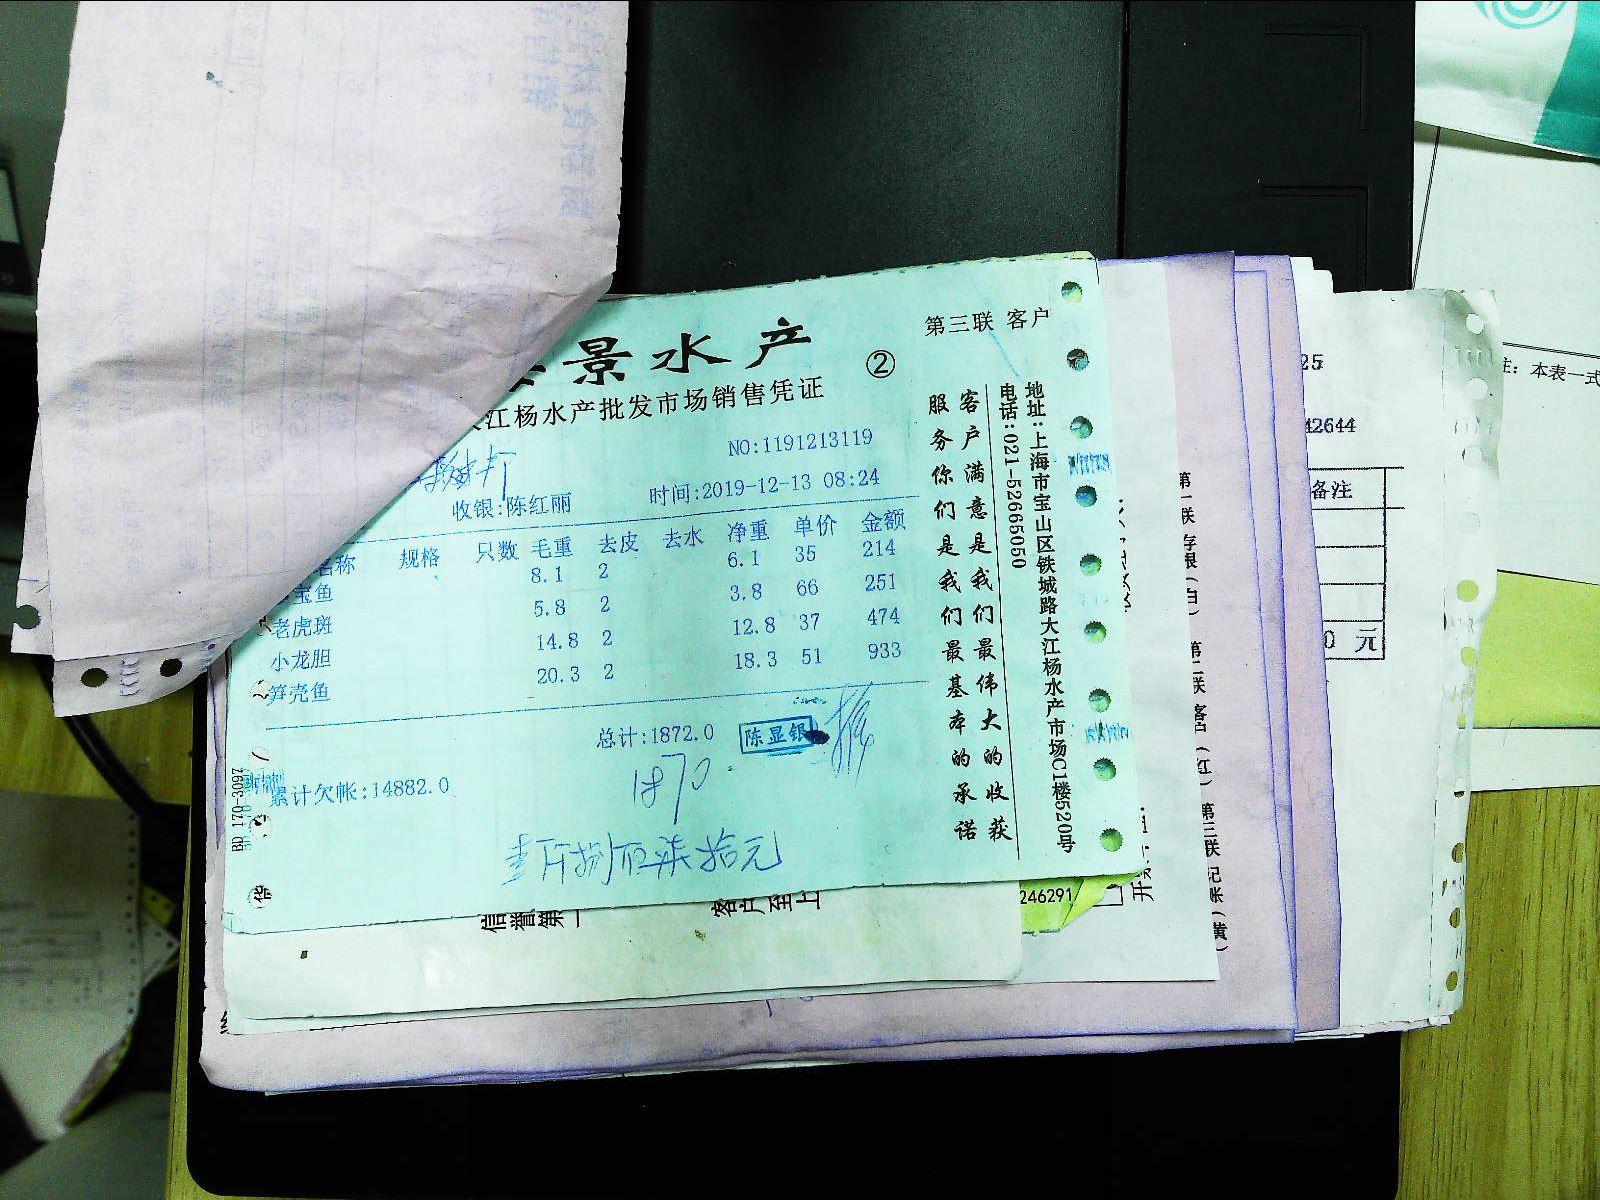 第三联 客户
景水产
②
江杨水产批发市场销售凭证
NO:1191213119
收银:陈红丽
时间:2019-12-13 08:24
名称 规格 只数 毛重 去皮 去水 净重 单价 金额
宝鱼 8.1 2 6.1 35 214
老虎斑 5.8 2 3.8 66 251
小龙胆 14.8 2 12.8 37 474
笋壳鱼 20.3 2 18.3 51 933
总计:1872.0
陈显银
1870
累计欠帐:14882.0
壹仟捌佰柒拾元
客户满意是我们最伟大的收获
服务你们是我们最基本的承诺
地址:上海市宝山区铁城路大江杨水产市场C1楼520号
电话:021-52665050
BD 170-3097
信誉第一
客户至上
246291
第一联 存根(白) 第二联 客 (红) 第三联 记账(黄)
25
42644
备注
0 元
注: 本表一式